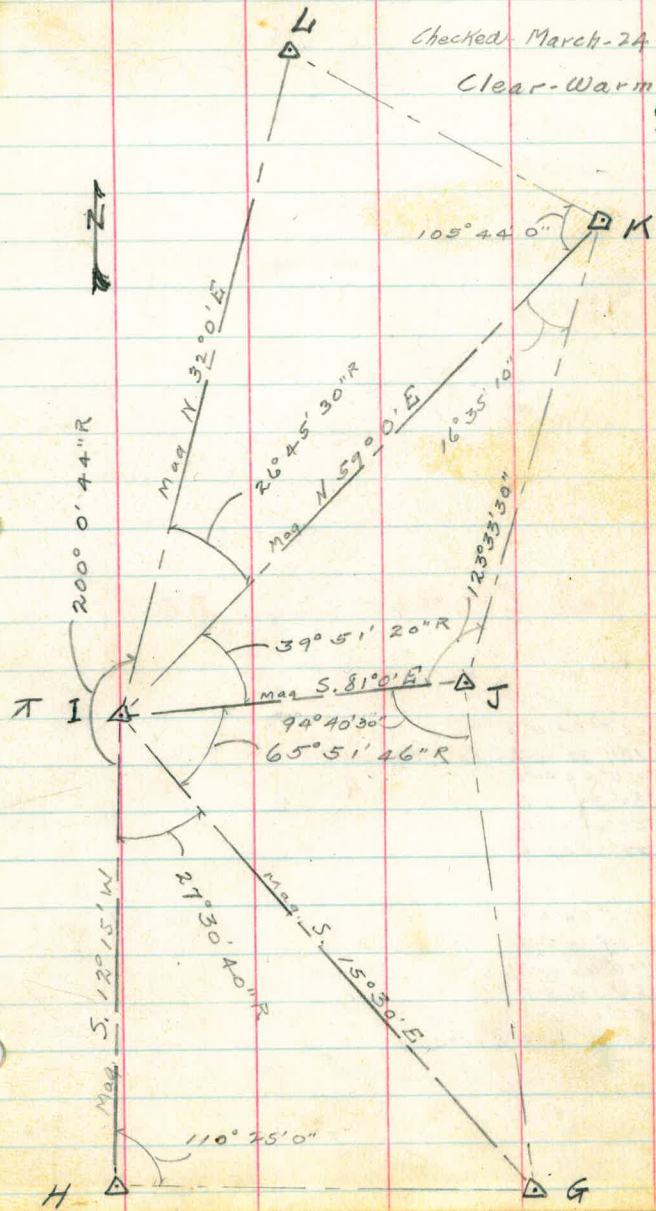 L
Checked March-24
Clear-Warm
N
K
105° 44' 0"
Mag N 32° 0' E
26° 45' 30" R
Mag N 59° 0' E
16° 35' 10"
200° 0' 44" R
123° 33' 30"
39° 51' 20" R
Mag S. 81° 0' E
J
⊼ I
94° 40' 30"
65° 51' 46" R
27° 30' 40" R
Mag. S. 15° 30' E
Mag. S. 12° 15' W
110° 25' 0"
H
G